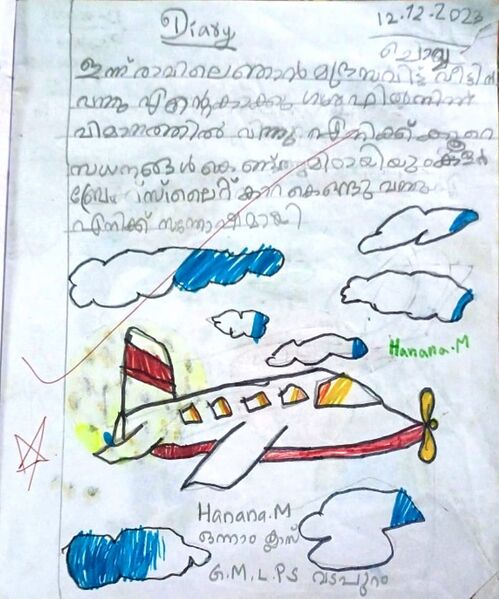 Diary
12.12.2023
ചൊവ്വ
ഇന്ന് രാവിലെ ഞാൻ മദ്രസവിട്ട് വീട്ടിൽ
വന്നു എന്റെ കാക്കു ഗൾഫിൽ നിന്ന്
വിമാനത്തിൽ വന്നു എനിക്ക് കുറെ
സധനങ്ങൾ മിഠായിയും കളർ
കാറ് കൊണ്ടു വന്നു
എനിക്ക് സന്തോഷമായി
Hanana.M
Hanana.M
ഒന്നാം ക്ലാസ്
G.M.L.P.S വടപുറം